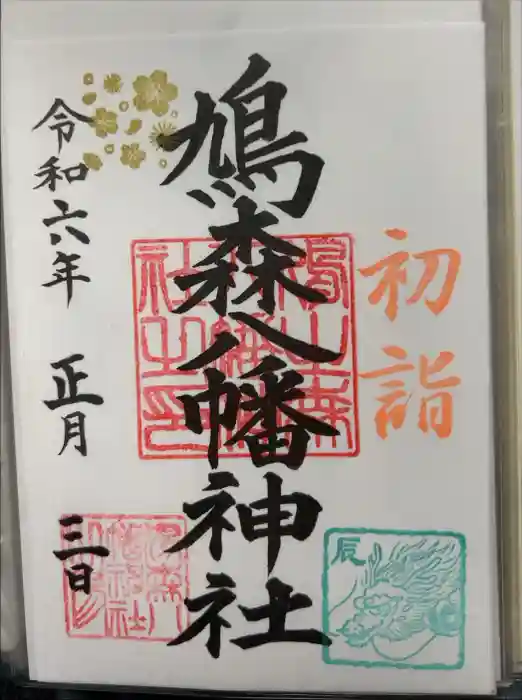 初詣
鳩森八幡神社
令和六年 正月 三日
辰